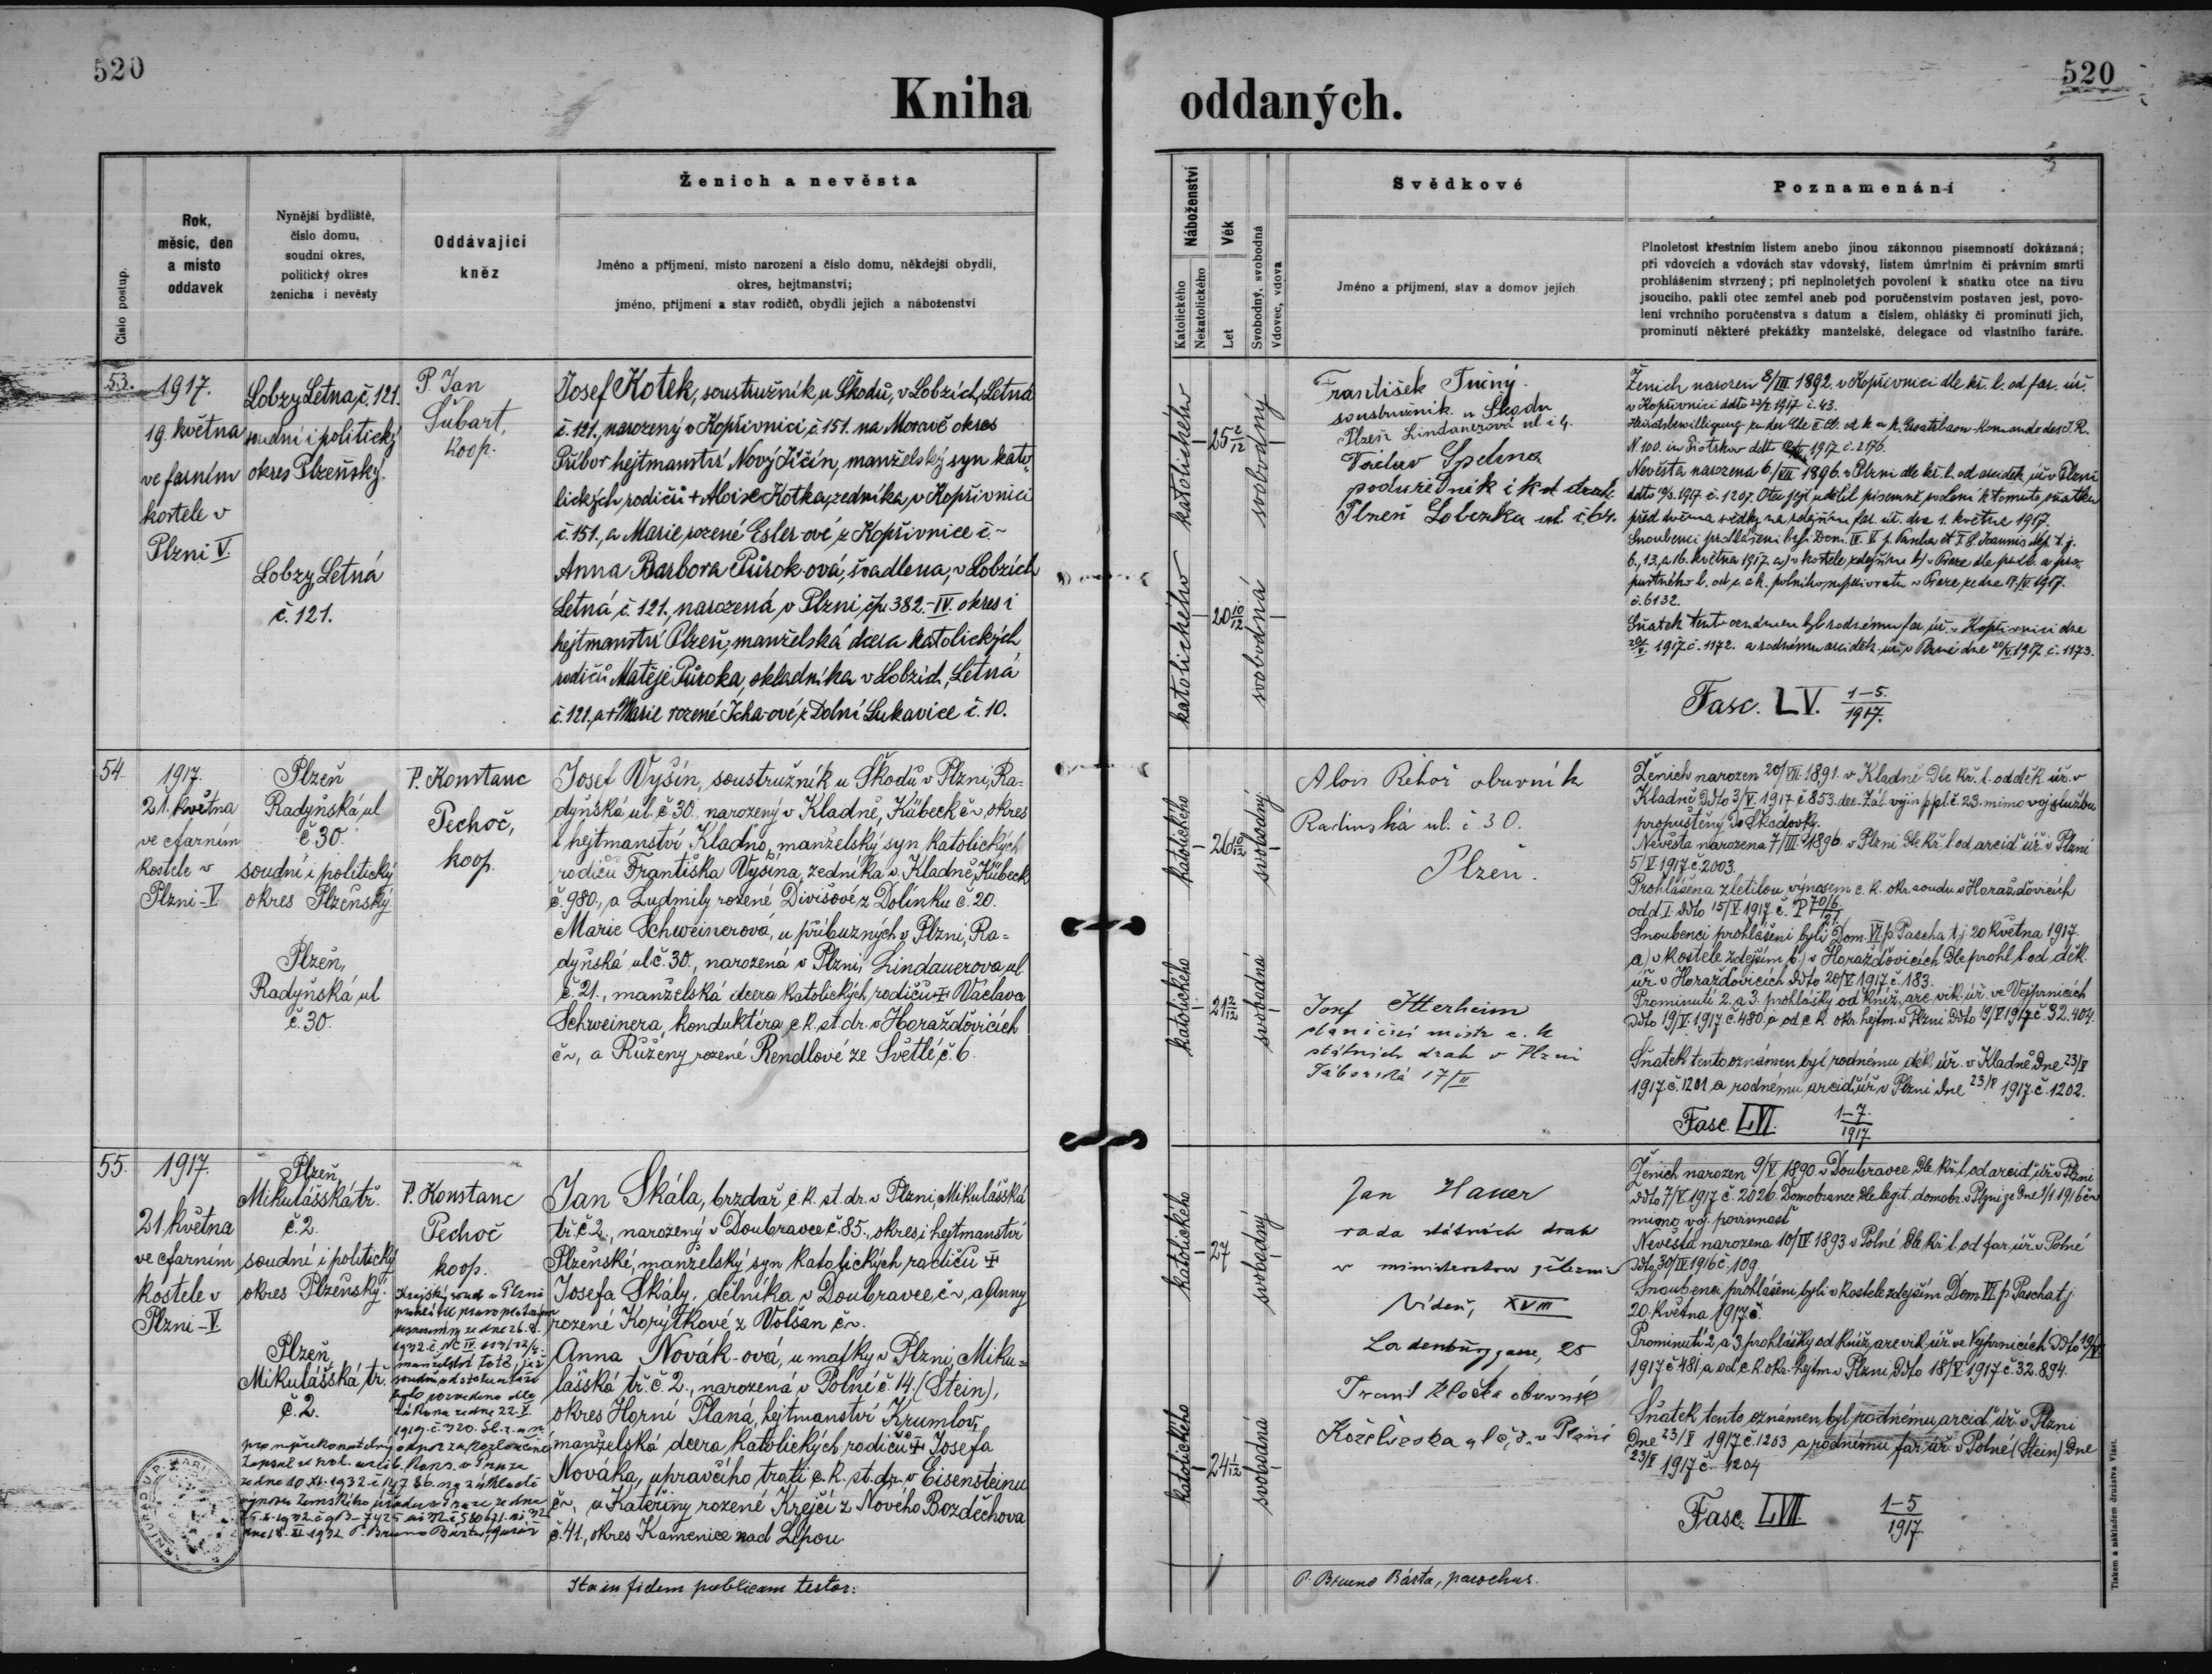 520
520
Kniha oddaných.
Číslo postup.
Rok,
měsíc, den
a místo
oddavek
Nynější bydliště,
číslo domu,
soudní okres,
politický okres
ženicha i nevěsty
Oddávající
kněz
Ženich a nevěsta
Jméno a příjmení, místo narození a číslo domu, někdejší obydlí,
okres, hejtmanství;
jméno, příjmení a stav rodičů, obydlí jejich a náboženství
Náboženství
Katolického
Nekatolického
Věk
Let
Svobodný, svobodná
Vdovec, vdova
Svědkové
Jméno a příjmení, stav a domov jejich
Poznamenání
Plnoletost křestním listem anebo jinou zákonnou písemností dokázaná;
při vdovcích a vdovách stav vdovský, listem úmrtním či právním smrti
prohlášením stvrzený; při neplnoletých povolení k sňatku otce na živu
jsoucího, pakli otec zemřel aneb pod poručenstvím postaven jest, povo-
lení vrchního poručenstva s datum a číslem, ohlášky či prominutí jich,
prominutí některé překážky manželské, delegace od vlastního faráře.
53.
1917.
19. května
ve farním
kostele v
Plzni V.
Lobzy Letna, č. 121.
soudní i politický
okres Plzeňský.
Lobzy Letná
č. 121.
P. Jan
Šubart,
koop.
Josef Kotek, soustružník u Škodů, v Lobzích, Letná
č. 121., narozený v Kopřivnici č. 151. na Moravě okres
Příbor hejtmanství Nový Jičín, manželský syn kato-
lických rodičů + Aloise Kotka, zedníka, v Kopřivnici
č. 151., a Marie, rozené Esler-ové z Kopřivnice č. ~
Anna Barbora Půrok-ová, švadlena, v Lobzích
Letná č. 121., narozená v Plzni čp. 382.-IV. okres i
hejtmanství Plzeň, manželská dcera katolických
rodičů Matěje Půroka, skladníka v Lobzích, Letná
č. 121., a + Marie rozené Icha-ové z Dolní Lukavice č. 10.
katolického
25 2/12
svobodný
katolického
20 10/12
svobodná
František Tučný.
soustružník u Škodů
Plzeň Lindauerova ul. č 4.
Václav Spelina
podúředník
Plzeň Lobezka ul. č. 64.
Ženich narozen 8/III 1892. v Kopřivnici dle kř. l. od far. úř.
v Kopřivnici ddto 1917 č. 43.
N. 100. in Piotrkow ddto 1917 č. 2176.
Nevěsta narozena 6/VII 1896. v Plzni dle kř. l. od arciděk. úř. v Plzni
ddto 1917. č. 1207. Otec její udělil písemně svolení k tomuto sňatku
před dvěma svědky na zdejším far. úř. dne 1. května 1917.
6., 13., a 16. května 1917. a) v kostele zdejším b) v Praze dle
1917.
č. 6132.
Sňatek tento oznámen byl rodnému far. úř. v Kopřivnici dne
1917 č. 1172. a rodnému arciděk. úř. v Plzni dne 1917 č. 1173.
Fasc. LV. 1–5. 1917.
54.
1917.
21. května
ve farním
kostele v
Plzni-V
Plzeň
Radyňská ul
č 30.
soudní i politický
okres Plzeňský.
Plzeň,
Radyňská ul
č. 30.
P. Konstanc
Pechoč,
koop.
Josef Vyšín, soustružník u Škodů v Plzni, Ra-
dyňská ul. č. 30. narozený v Kladně, Kübeck č~, okres
i hejtmanství Kladno, manželský syn katolických
rodičů Františka Vyšína, zedníka v Kladně, Kübeck
č. 980., a Ludmily rozené Divišové z Dolínku č. 20.
Marie Schweinerová, u příbuzných v Plzni, Ra-
dyňská ul. č. 30., narozená v Plzni, Lindauerova ul
č. 21., manželská dcera katolických rodičů + Václava
Schweinera, konduktéra c. k. st. dr. v Horažďovicích
č~, a Růženy rozené Rendlové ze Světlé č. 6.
katolického
26 10/12
svobodný
katolického
21 2/12
svobodná
Alois Řehoř obuvník
Radinská ul. č 30.
Plzeň.
Josef Itterheim
staniční mistr c. k
státních drah v Plzni
Táborská 17/II
Ženich narozen 20/VII. 1891. v Kladně dle kř. l. od děk. úř. v
Kladně ddto 3/V. 1917 č. 853. mimo voj. službu
propuštěný do Škodovky.
Nevěsta narozena 7/III. 1896. v Plzni dle kř. l. od arcid. úř. v Plzni
5/V 1917 č. 2003.
Prohlášena zletilou výnosem c. k. okr. soudu v Horažďovicích
odd I ddto 15/V. 1917 č. P 70/6 21.
Snoubenci prohlášeni byli Dom. VI p. Pascha t. j. 20 května 1917.
a) v kostele zdejším b) v Horažďovicích dle prohl. l. od děk.
úř. v Horažďovicích ddto 20/V 1917 č. 183.
Prominutí 2. a 3. prohlášky od kníž. arc. vik. úř. ve Vejprnicích
ddto 19/V. 1917 č. 480, a od c. k. okr. hejtm. v Plzni ddto 19/V 1917 č. 32.404.
Sňatek tento oznámen byl rodnému děk. úř. v Kladně dne 23/V
1917 č. 1201 a rodnému arcid. úř. v Plzni dne 23/V 1917. č. 1202.
Fasc. LVI. 1–7. 1917
55.
1917.
21 května
ve farním
kostele v
Plzni-V
Plzeň,
Mikulášská tř.
č. 2.
soudní i politický
okres Plzeňský.
Plzeň,
Mikulášská tř.
č. 2.
P. Konstanc
Pechoč
koop.
Krajský soud v Plzni
prohlásil pravoplatným
usnesením ze dne 26. 8.
1932 č. Nc IV 613/32/4.
manželství toto, jež
soudně od stolu a lože
bylo rozvedeno dle
zákona ze dne 22. V.
1919. č. 320. Sb. z. a n.
pro nepřekonatelný odpor za rozloučené
ze dne 10. XI. 1932 č. 14786. na základě
výnosu Zemského úřadu v Praze ze dne
dne 18. XI 1932 P. Bruno Bárta, farář
Jan Skála, brzdař c. k. st. dr. v Plzni, Mikulášská
tř. č. 2., narozený v Doubravce č. 85., okres i hejtmanství
Plzeňské, manželský syn katolických rodičů +
Josefa Skály, dělníka v Doubravce č~, a Anny
rozené Korýtkové z Volšan č~.
Anna Novák-ová, u matky v Plzni, Miku-
lášská tř. č. 2., narozená v Polné č. 14. (Stein),
okres Horní Planá, hejtmanství Krumlov,
manželská dcera katolických rodičů + Josefa
Nováka, upravčího trati c. k. st. dr. v Eisensteinu
č~, a Kateřiny rozené Krejčí z Nového Bozděchova
č. 41, okres Kamenice nad Lipou
katolického
27
svobodný
katolického
24 1/12
svobodná
Jan Hauer
rada státních drah
v ministerstvu železnic
Vídeň, XVIII
Ladenburggasse, 25
Frant Kločka obuvník
v Plzni
Ženich narozen 9/V 1890 v Doubravce dle kř. l. od arcid. úř. v Plzni
ddto 7/V 1917 č. 2026. Domobranec dle legit. domobr. v Plzni ze dne 1916 č~
mimo voj. povinnost
Nevěsta narozena 10/IV 1893 v Polné dle kř. l. od far. úř. v Polné
ddto 30/IX 1916 č. 109
Snoubenci prohlášeni byli v kostele zdejším Dom VI p Pascha t. j.
20. května 1917.
Prominutí 2 a 3 prohlášky od kníž. arc. vik. úř. ve Vejprnicích ddto 19/V
1917 č 481, a od c. k. okr. hejtm. v Plzni ddto 18/V 1917 č. 32.894.
Sňatek tento oznámen byl rodnému arcid. úř. v Plzni
dne 23/V 1917 č. 1203 a rodnému far. úř. v Polné (Stein) dne
23/V 1917 č 1204
Fasc. LVII. 1–5 1917
Ita in fidem publicam testor:
P. Bruno Bárta, parochus.
Tiskem a nákladem družstva Vlast.